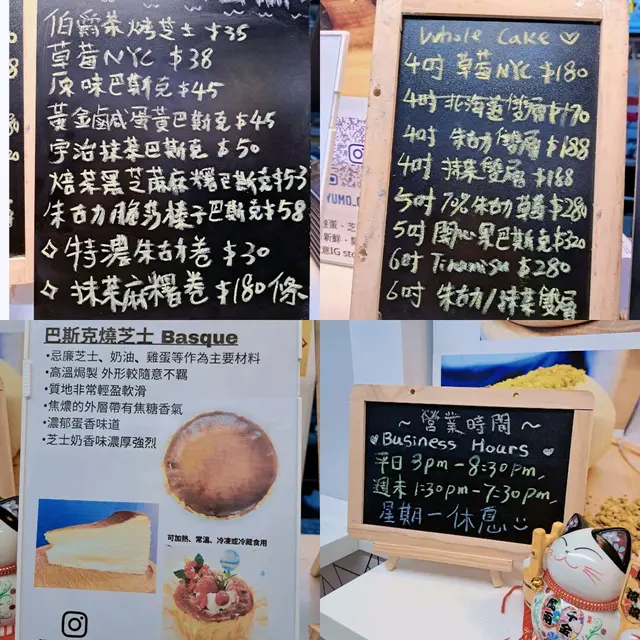 伯爵茶烤芝士 $35
草莓NYC $38
原味巴斯克 $45
黃金鹹蛋黃巴斯克 $45
宇治抹茶巴斯克 $50
焙茶黑芝麻麻糬巴斯克 $53
朱古力脆莎榛子巴斯克 $58
特濃朱古力卷 $30
抹茶麻糬卷 $180條
Whole Cake
4吋 草莓NYC $180
4吋 北海道雙層 $170
4吋 朱古力雙層 $188
4吋 抹茶雙層 $188
5吋 70%朱古力草莓 $280
5吋 開心果巴斯克 $320
6吋 Tiramisu $280
6吋 朱古力/抹茶雙層
YUMO_
蛋、芝
新鮮、
IG sto
巴斯克燒芝士 Basque
•忌廉芝士、奶油、雞蛋等作為主要材料
•高溫焗製 外形較隨意不羈
•質地非常輕盈軟滑
•焦燶的外層帶有焦糖香氣
•濃郁蛋香味道
•芝士奶香味濃厚強烈
可加熱、常溫、冷凍或冷藏食用
~ 營業時間 ~
Business Hours
平日 3pm-8:30pm,
週末 1:30pm-7:30pm,
星期一休息